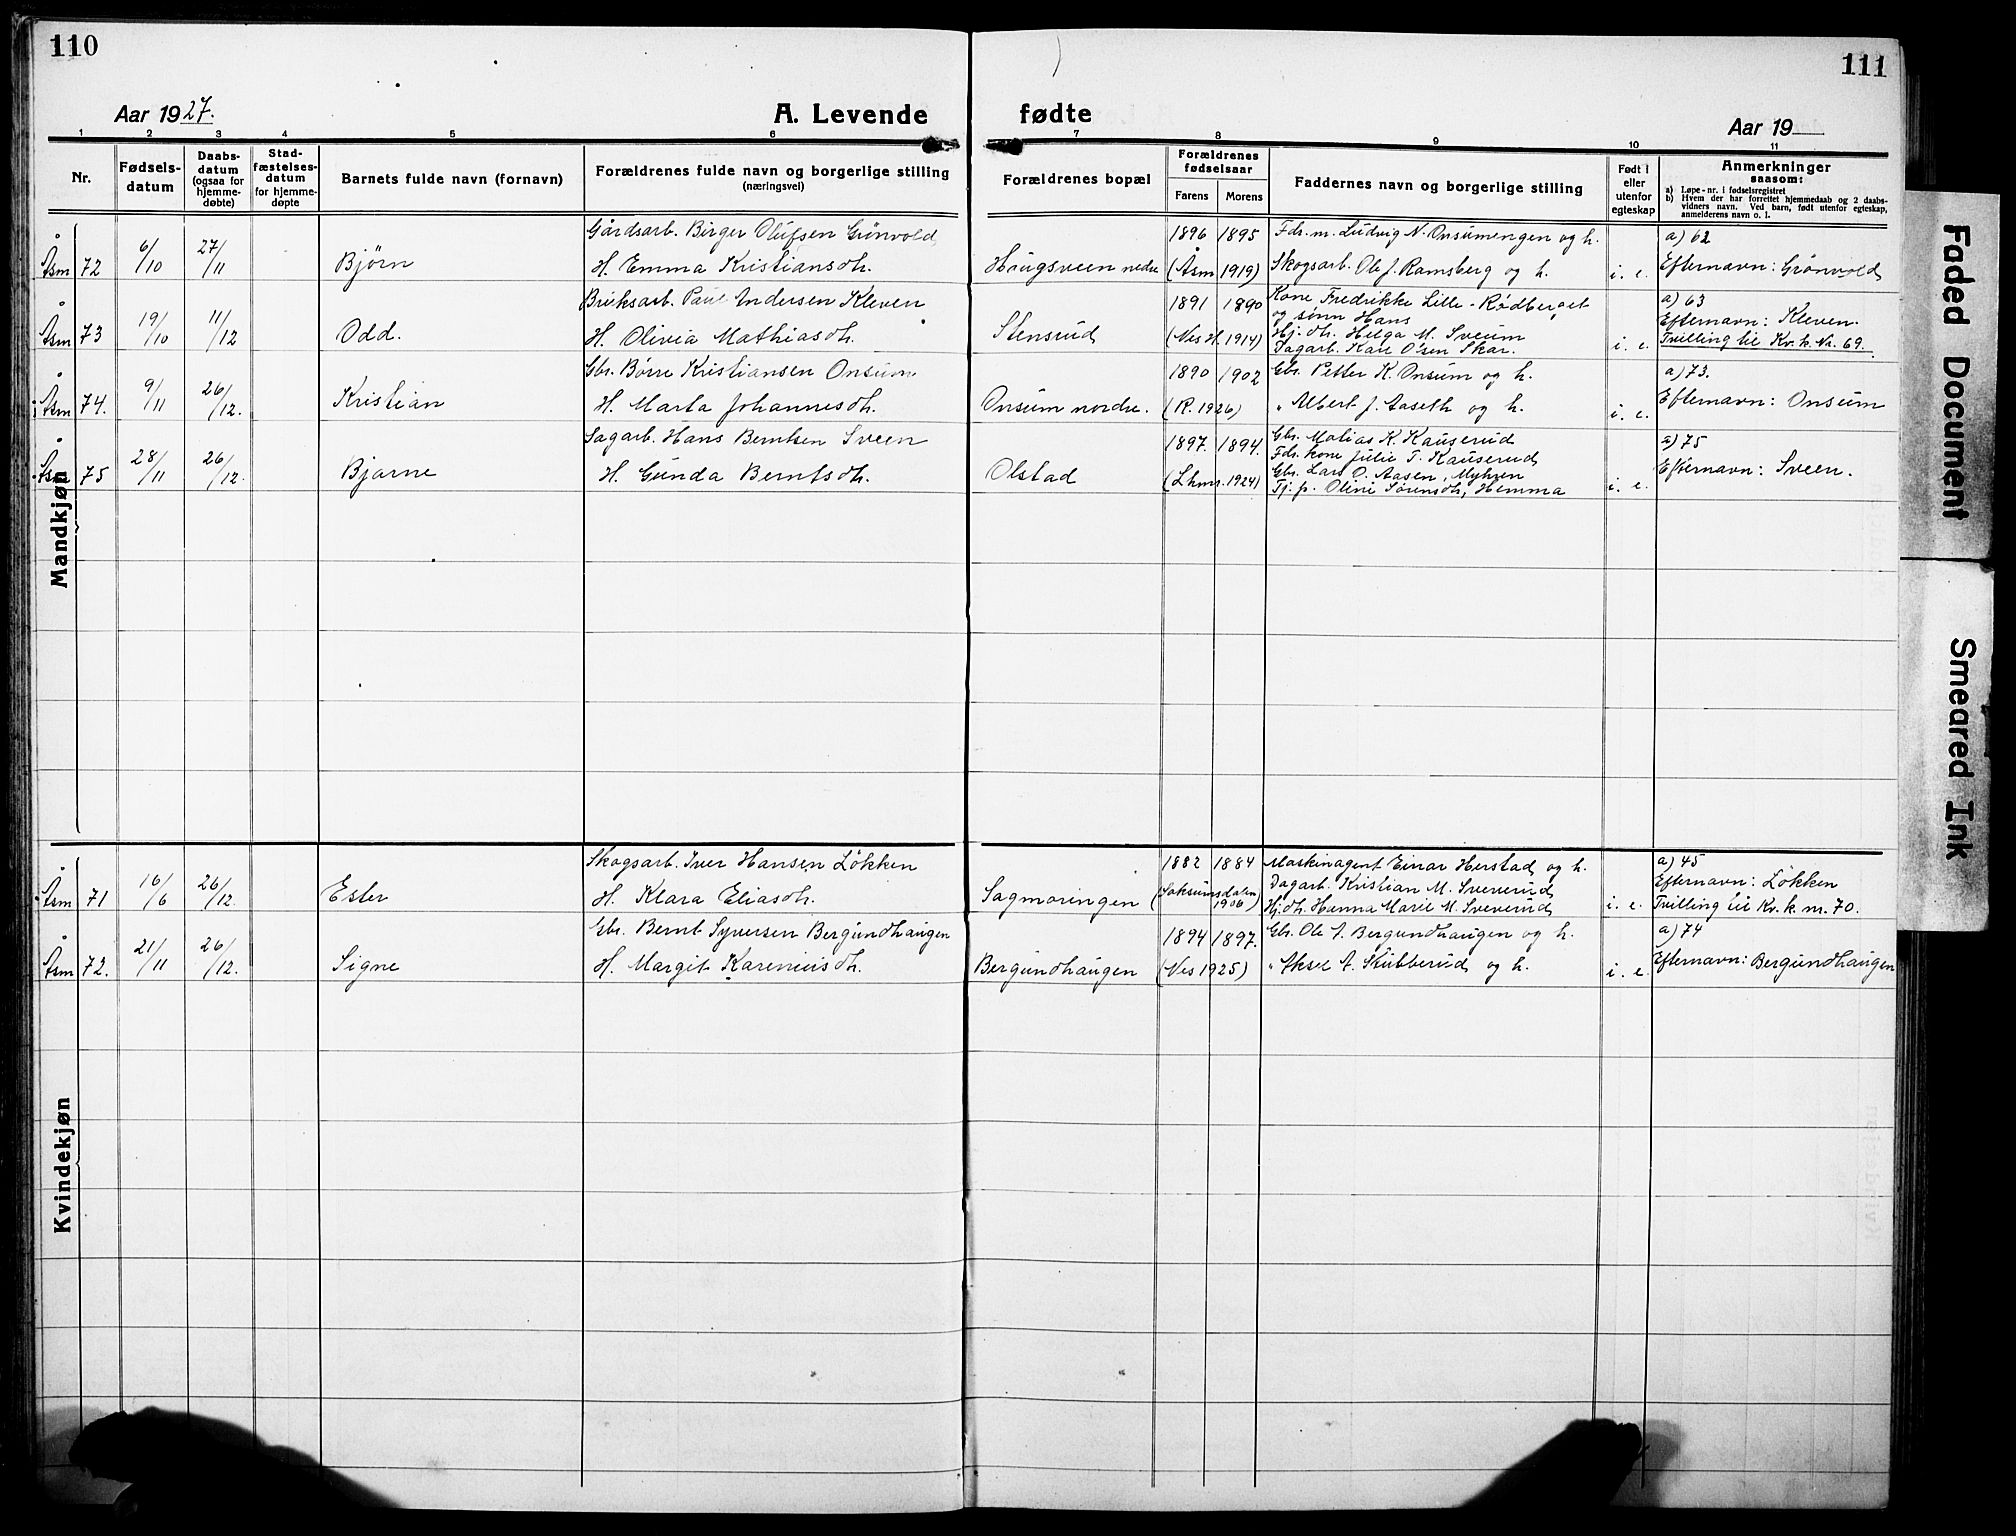 110
111
Aar 1927.
A. Levende fødte
Aar 19
1 2 3 4 5 6 7 8 9 10 11
Nr.
Fødsels-
datum
Daabs-
datum
(ogsaa for
hjemme-
døbte)
Stad-
fæstelses-
datum
for hjemme-
døpte
Barnets fulde navn (fornavn)
Forældrenes fulde navn og borgerlige stilling
(næringsvei)
Forældrenes bopæl
Forældrenes
fødselsaar
Farens Morens
Faddernes navn og borgerlige stilling
Født i
eller
utenfor
egteskap
Anmerkninger
saasom:
a) Løpe-nr. i fødselsregistret
b) Hvem der har forrettet hjemmedaab og 2 daabs-
vidners navn. Ved barn, født utenfor egteskap,
anmelderens navn o. l.
Mandkjøn
Åsm 72
6/10
27/11
Bjørn
Gårdsarb. Birger Olufsen Grönvold
H. Emma Kristiansdh.
Haugsveen nedre
1896 1895
(Åsm 1919)
Fds. m. Ludvig N. Onsumengen og h.
Skogsarb. Ole J. Ramsberg og h.
i. e.
a) 62
Efternavn: Grönvold
Åsm 73
19/10
11/12
Odd.
Bruksarb. Paul Andersen Kleven
H. Olivia Mathiasdh.
Stensrud
1891 1890
(Nes H. 1914)
Kone Fredrikke Lille-Rødberget
og sønn Hans
Hj. dh. Helga M. Sveum
Dagarb. Kåre Olsen Skar.
i. e.
a) 63
Efternavn: Kleven.
Tvilling til Kv. k. Nr. 69.
Åsm 74.
9/11
26/12.
Kristian
Gbr. Børre Kristiansen Onsum
H. Marta Johannesdh.
Onsum nordre.
1890 1902
(R. 1926)
Gbr. Petter K. Onsum og h.
" Albert J. Aaseth og h.
i. e.
a) 73.
Efternavn: Onsum
Åsm 75
28/11
26/12.
Bjarne
Sagarb. Hans Berntsen Sveen
H. Gunda Berntsdh.
Olstad
1897. 1894.
(Lhmr. 1924)
Gbr. Matias K. Kauserud
Fds. kone Julie T. Kauserud
Gbr. Lars O. Aasen, Myhren
Tj. p. Oline Sørensdh, Hemma
i. e.
a) 75
Efternavn: Sveen.
Kvindekjøn
Åsm 71
16/6
26/12.
Ester
Skogsarb. Iver Hansen Lökken
H. Klara Eliasdh.
Sagmoringen
1882 1884
(Saksumsdalen
1906)
Maskinagent Einar Herstad og h.
Dagarb. Kristian M. Sveverud
Hj. dh. Hanna Marie M. Sveverud
i. e.
a) 45
Efternavn: Lökken
Tvilling til Kv. k. nr. 70.
Åsm 72.
21/11
26/12.
Signe
Gbr. Bernt Syversen Bergundhaugen
H. Margit Kareniusdh.
Bergundhaugen
1894 1897.
(Nes 1925)
Gbr. Ole A. Bergundhaugen og h.
" Aksel A. Skubberud og h.
i. e.
a) 74
Efternavn: Bergundhaugen
Faded Document
Smeared Ink